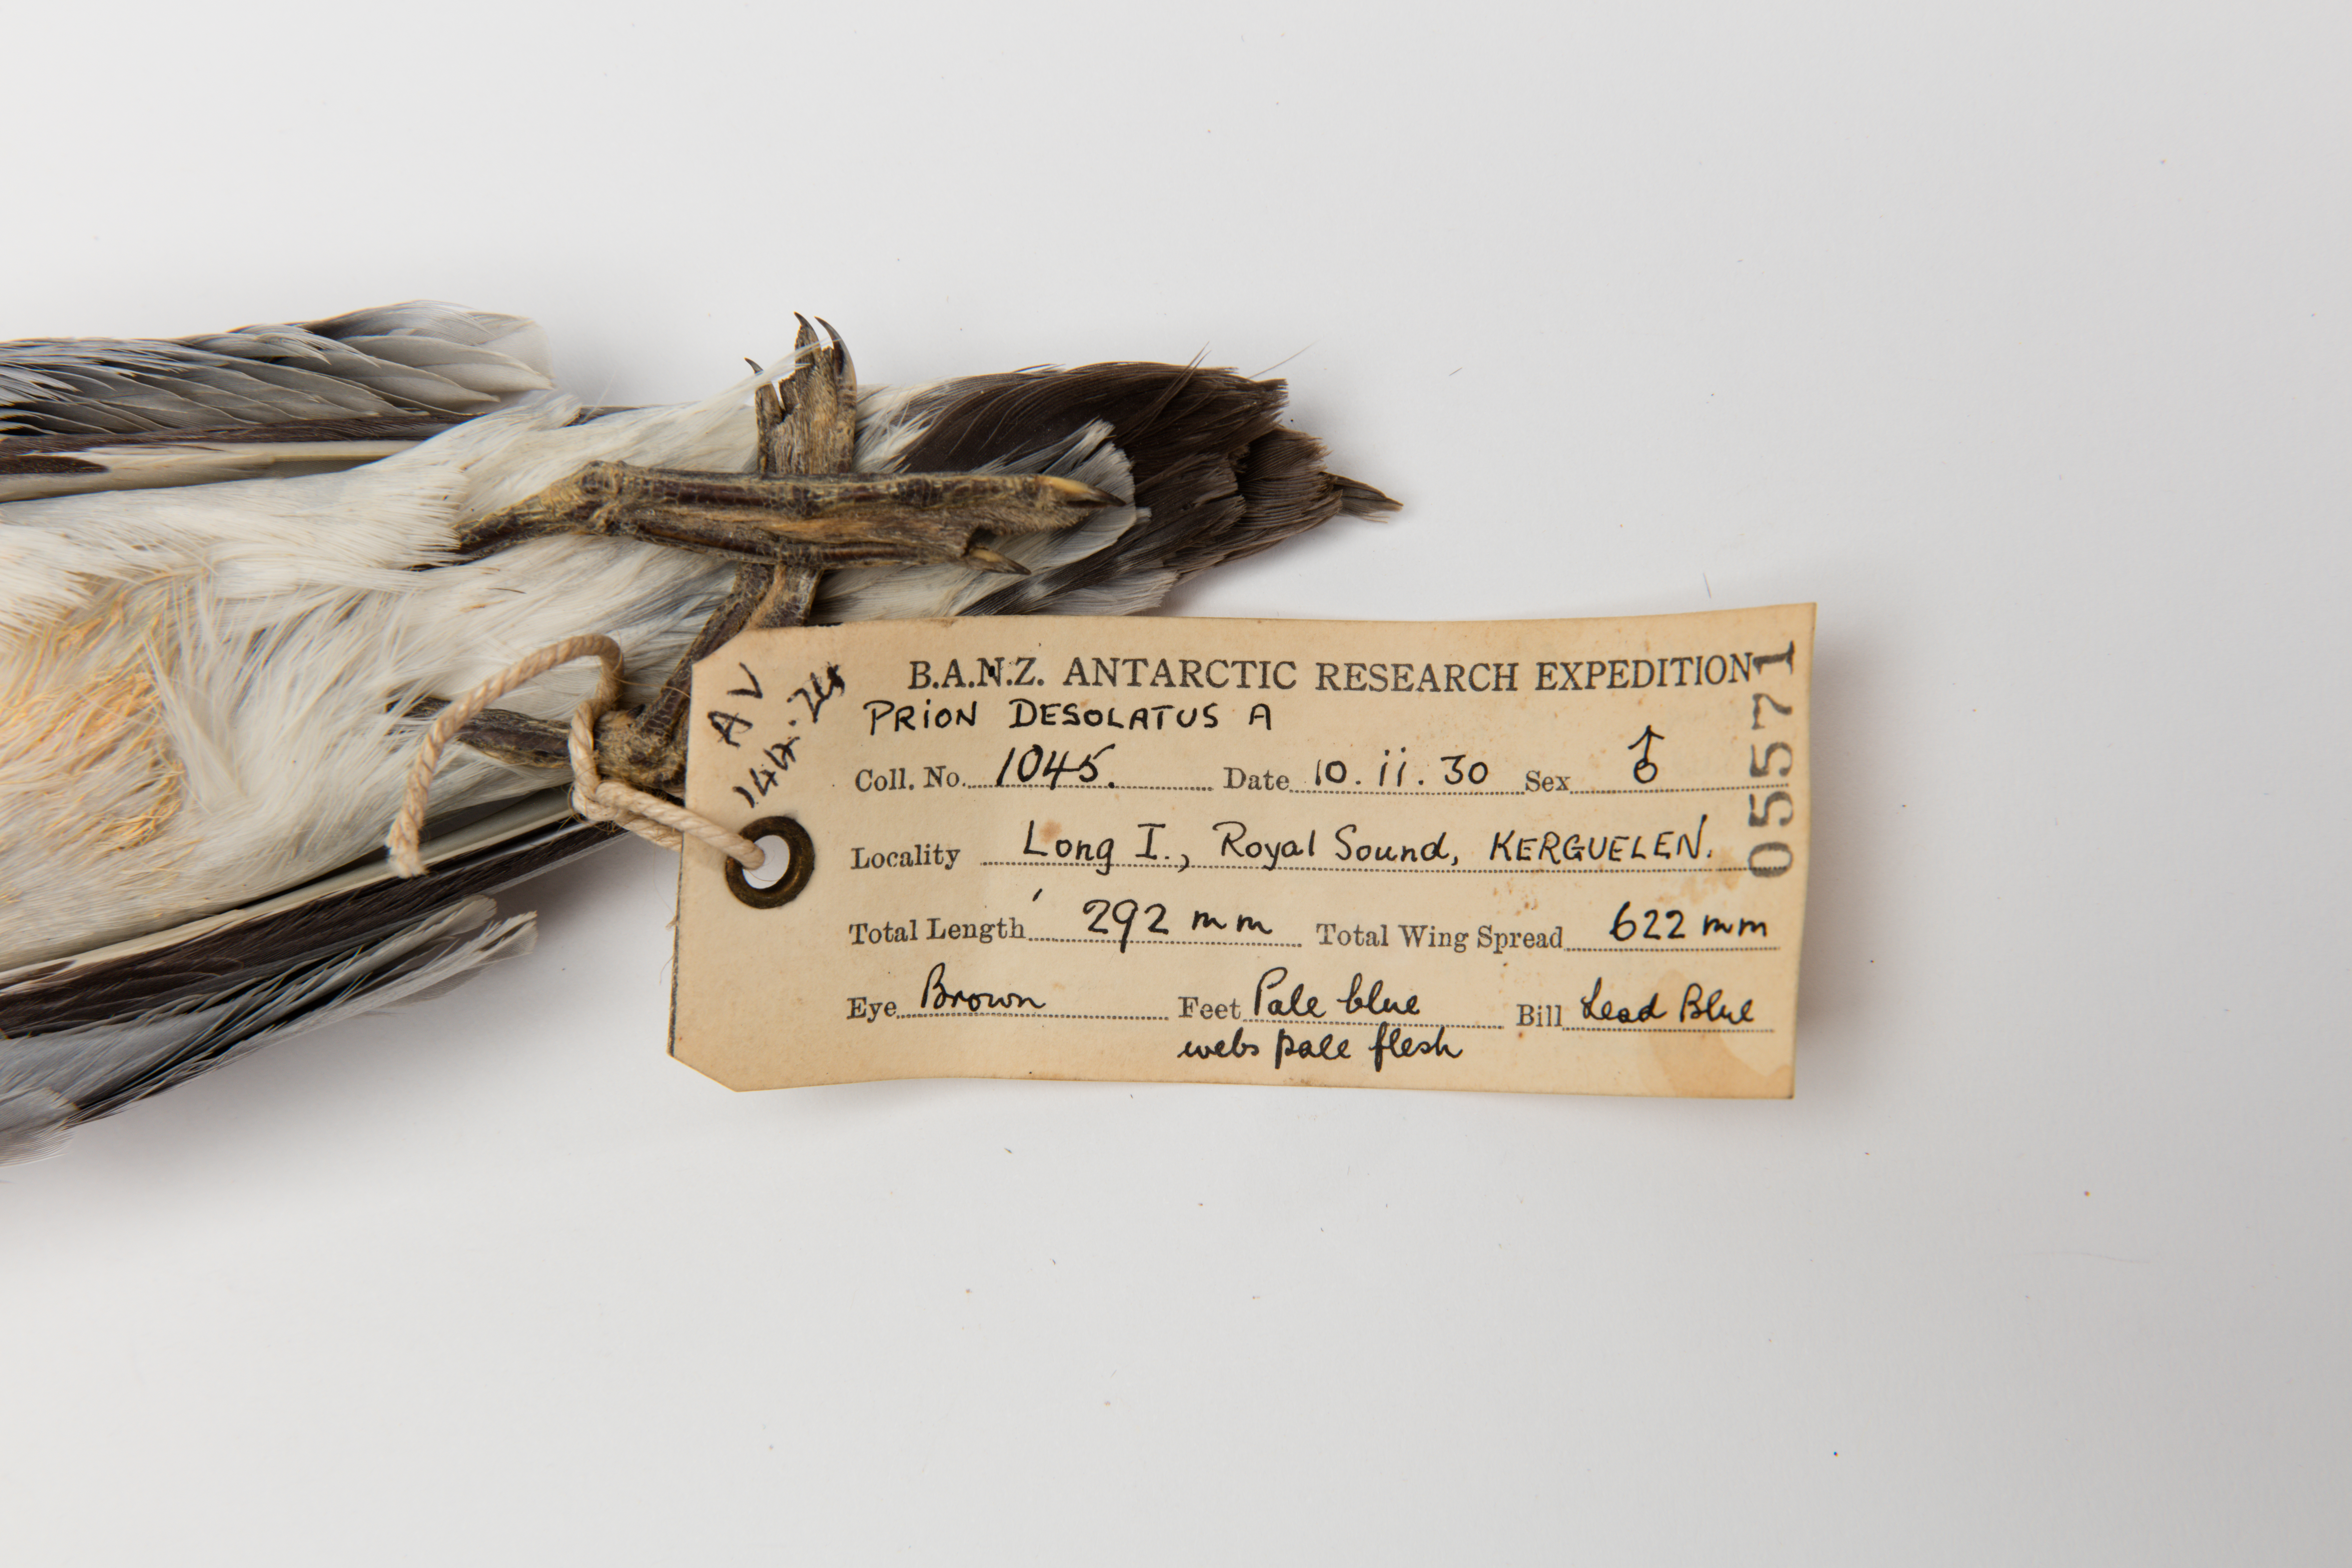 B.A.N.Z. ANTARCTIC RESEARCH EXPEDITION
PRION DESOLATUS A
Coll. No. 1045. Date 10.ii.30 Sex ♂
Locality Long I., Royal Sound, KERGUELEN.
Total Length 292 mm Total Wing Spread 622 mm
Eye Brown Feet Pale blue Bill Lead Blue
webs pale flesh
AV
144.24
05571